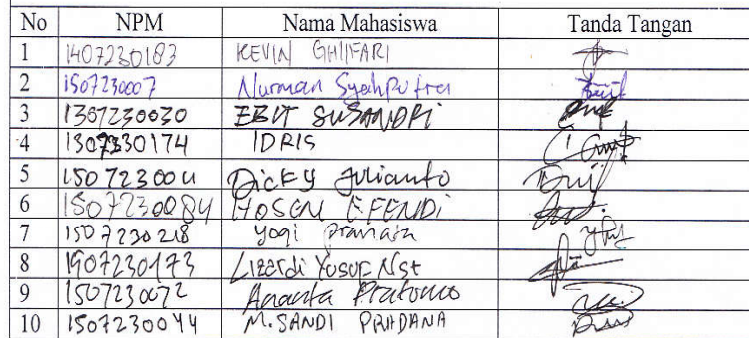 No NPM Nama Mahasiswa Tanda Tangan
1 1407230183 KEVIN GHIFARI
2 1507230007 Nurman Syahputra
3 1307230030 EBIT SUSANDRI
4 1307230174 IDRIS
5 1507230011 Dicky Julianto
6 1507230084 HOSEN EFENDI
7 1507230218 yogi pranata
8 1907230173 Lizardi Yosuf Nst
9 1507230072 Ananta Pratomo
10 1507230044 M. SANDI PRADANA